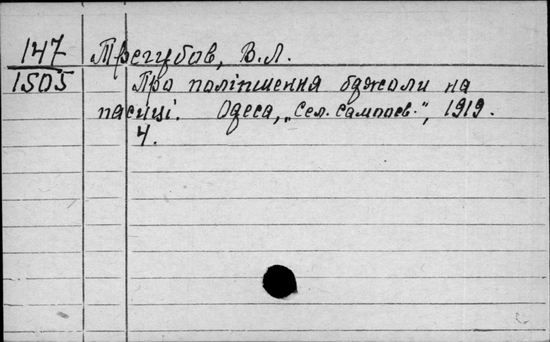 147
1505
Трегубов, В.Л.
Про поліпшення бджоли на
пасіці. Одеса, „Сел. самоосв.", 1919.
4.